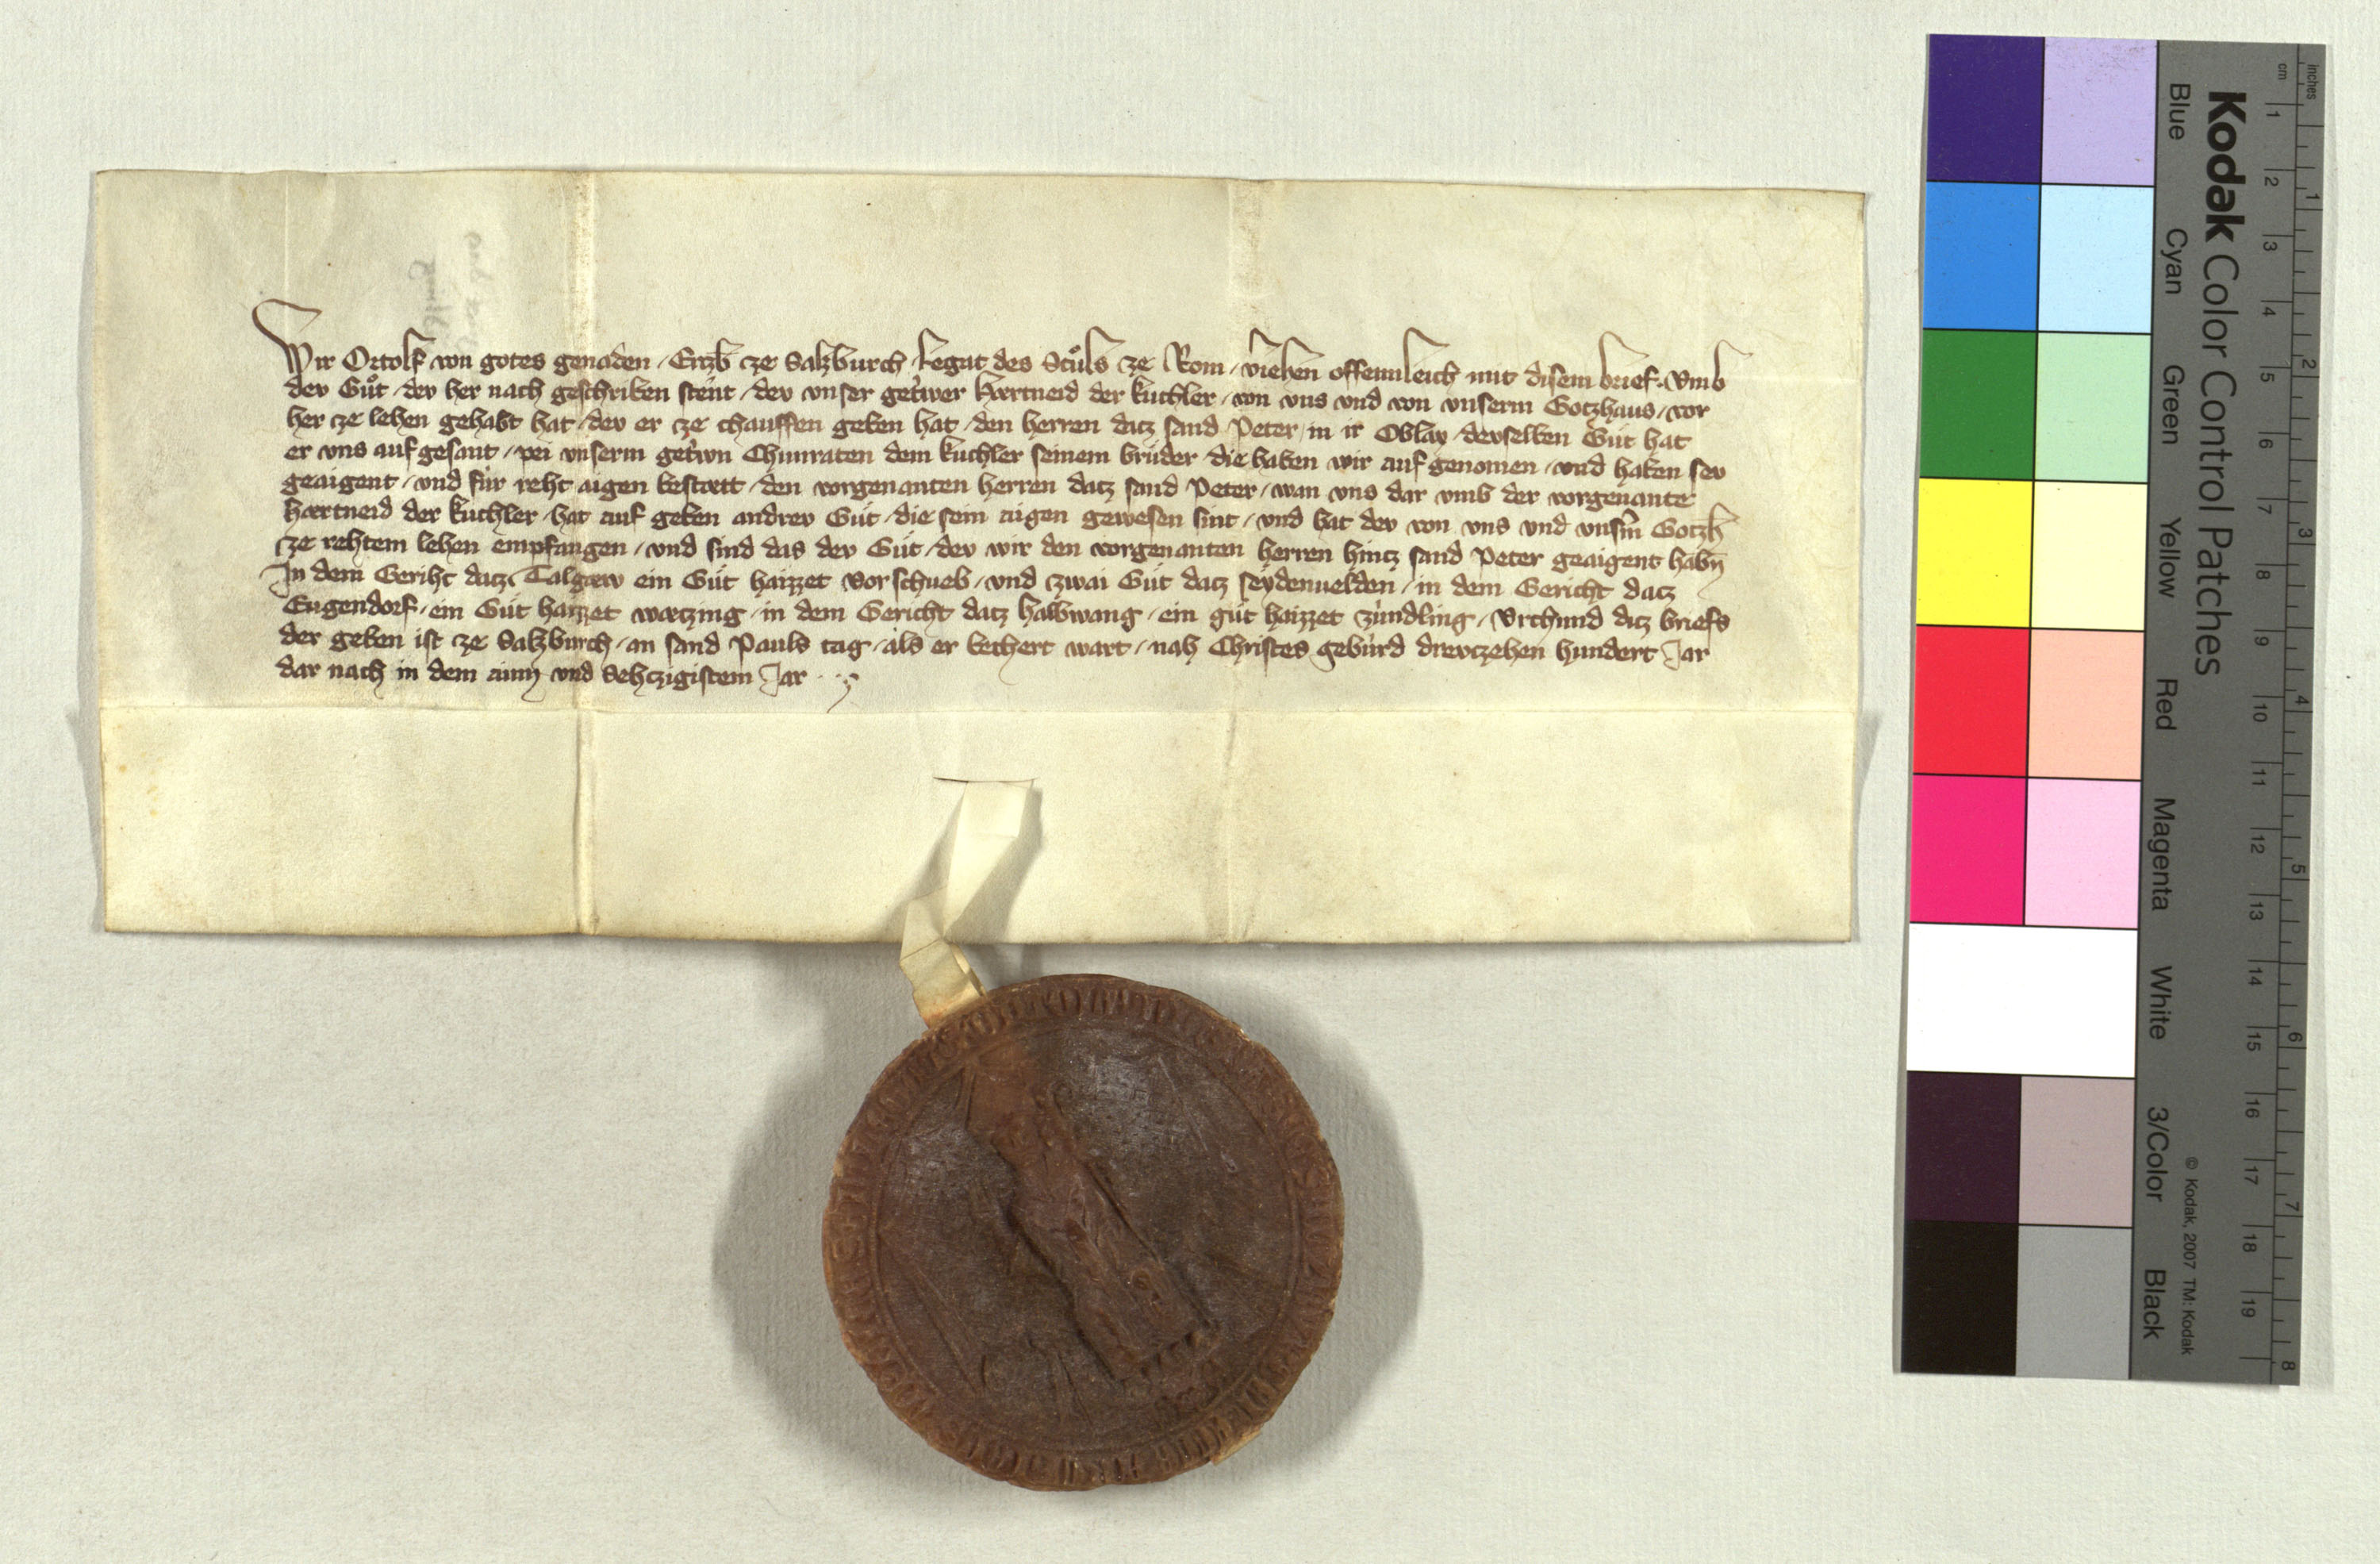 Wir Ortolf von gotes genaden / Ertzb ze Saltzburch / Legat des Stůls ze Rom / viehen offennleich mit disem brief / Vmb
dev Gůt / dev her nach geschriben stent / dev vnser getrwer Hærtneid der kuchler / von vns vnd von vnserm Gotzhaus / vor
her ze lehen gehabt hat / dev er ze chauffen geben hat / den herren datz sand Peter / in ir Oblay / devselben Gůt hat
er vns auf gesant / pei vnserm getrwn Chunraten dem kuchler seinem brůder / die haben wir auf genomen / vnd haben sev
geaigent / vnd fůr reht aigen bestætt / den vorgenanten herren datz sand Peter / wan vns dar vmb der vorgenante
Hærtneid der kuchler / hat auf geben andrev Gůt / die sein aigen gewesen sint / vnd hat dev von vns vnd vnsm Gotzh
ze rehtem lehen empfangen / vnd sind das dev Gůt / dev wir den vorgenanten herren hintz sand Peter geaigent habn
In dem Geriht datz Talgæw ein Gůt haizzet Vorschueb / vnd zwai Gůt datz seydenuelden / in dem Gericht datz
Eugendorf / ein Gůt haizzet wætzing / in dem Gericht datz halbwang / ein gůt haizzet zůndling / Vrchund ditz briefs
der geben ist ze Saltzburch / an sand Pauls tag / als er bechert wart / nah Christes gebůrd drevtzehen hundert Jar
dar nach in dem ainn vnd Sehtzigistem Jar
Kodak Color Control Patches
Blue Cyan Green Yellow Red Magenta White 3/Color Black
© Kodak, 2007 TM: Kodak
inches 1 2 3 4 5 6 7 8
cm 1 2 3 4 5 6 7 8 9 10 11 12 13 14 15 16 17 18 19